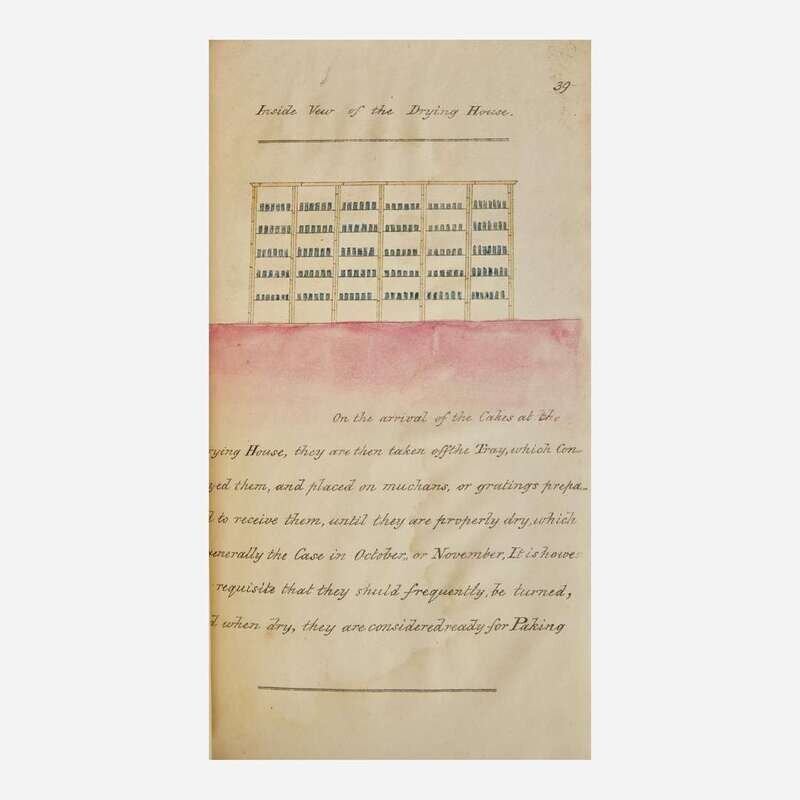 39
Inside Vew of the Drying House.
On the arrival of the Cakes at the
rying House, they are then taken off the Tray, which Con-
yed them, and placed on muchans, or gratings prepa-
d to receive them, until they are properly dry, which
enerally the Case in October, or November, It is howe
requisite that they shuld frequently, be turned,
d when dry, they are considered ready for Paking